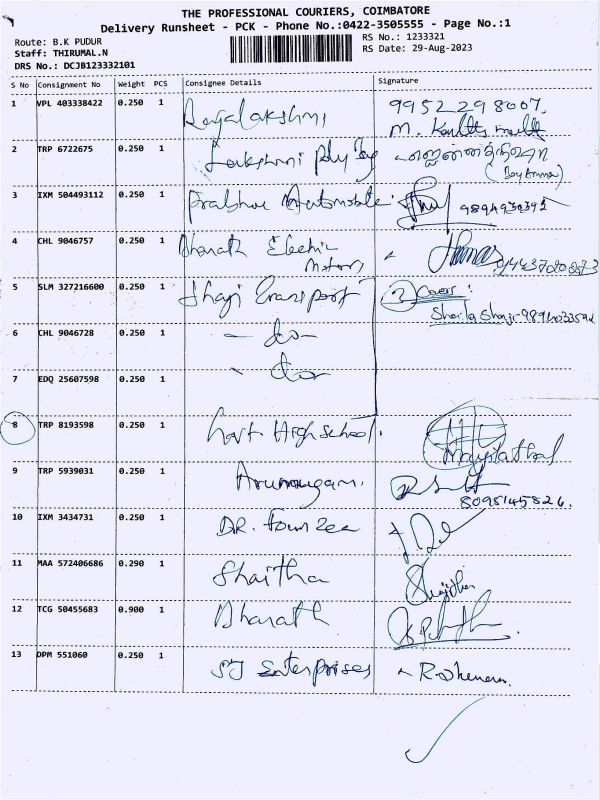 THE PROFESSIONAL COURIERS, COIMBATORE
Delivery Runsheet - PCK - Phone No.:0422-3505555 - Page No.:1
Route: B.K PUDUR
RS No.: 1233321
Staff: THIRUMAL.N
RS Date: 29-Aug-2023
DRS No.: DCJB123332101
S No Consignment No Weight PCS Consignee Details Signature
1 VPL 403338422 0.250 1 Rajalakshmi 9952298007.
M.
2 TRP 6722675 0.250 1 Lakshmi Poly
3 IXM 504493112 0.250 1 Prabhu Automobile
4 CHL 9046757 0.250 1 Bharath Electric
Motors
5 SLM 327216600 0.250 1 Shaji Transport 3 Cover:
Shaila Shaji
6 CHL 9046728 0.250 1 - do -
7 EDQ 25607598 0.250 1 - do -
8 TRP 8193598 0.250 1 Govt High school. Mayilathal
9 TRP 5939031 0.250 1 Arumugam.
8098145826.
10 IXM 3434731 0.250 1 DR.
11 MAA 572406686 0.290 1
12 TCG 50455683 0.900 1 Bharath
13 DPM 551060 0.250 1 SJ Enterprises